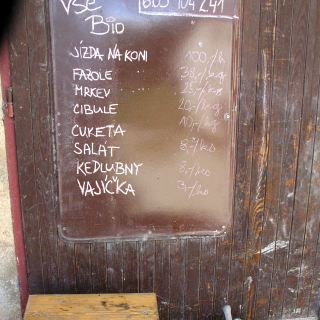 VŠE 605 104 241
BIO
JÍZDA NA KONI 100,-/h
FAZOLE 38,-/kg
MRKEV 25,-/kg
CIBULE 20,-/kg
CUKETA 10,-/kg
SALÁT 8,-/ks
KEDLUBNY 8,-/ks
VAJÍČKA 3,-/ks